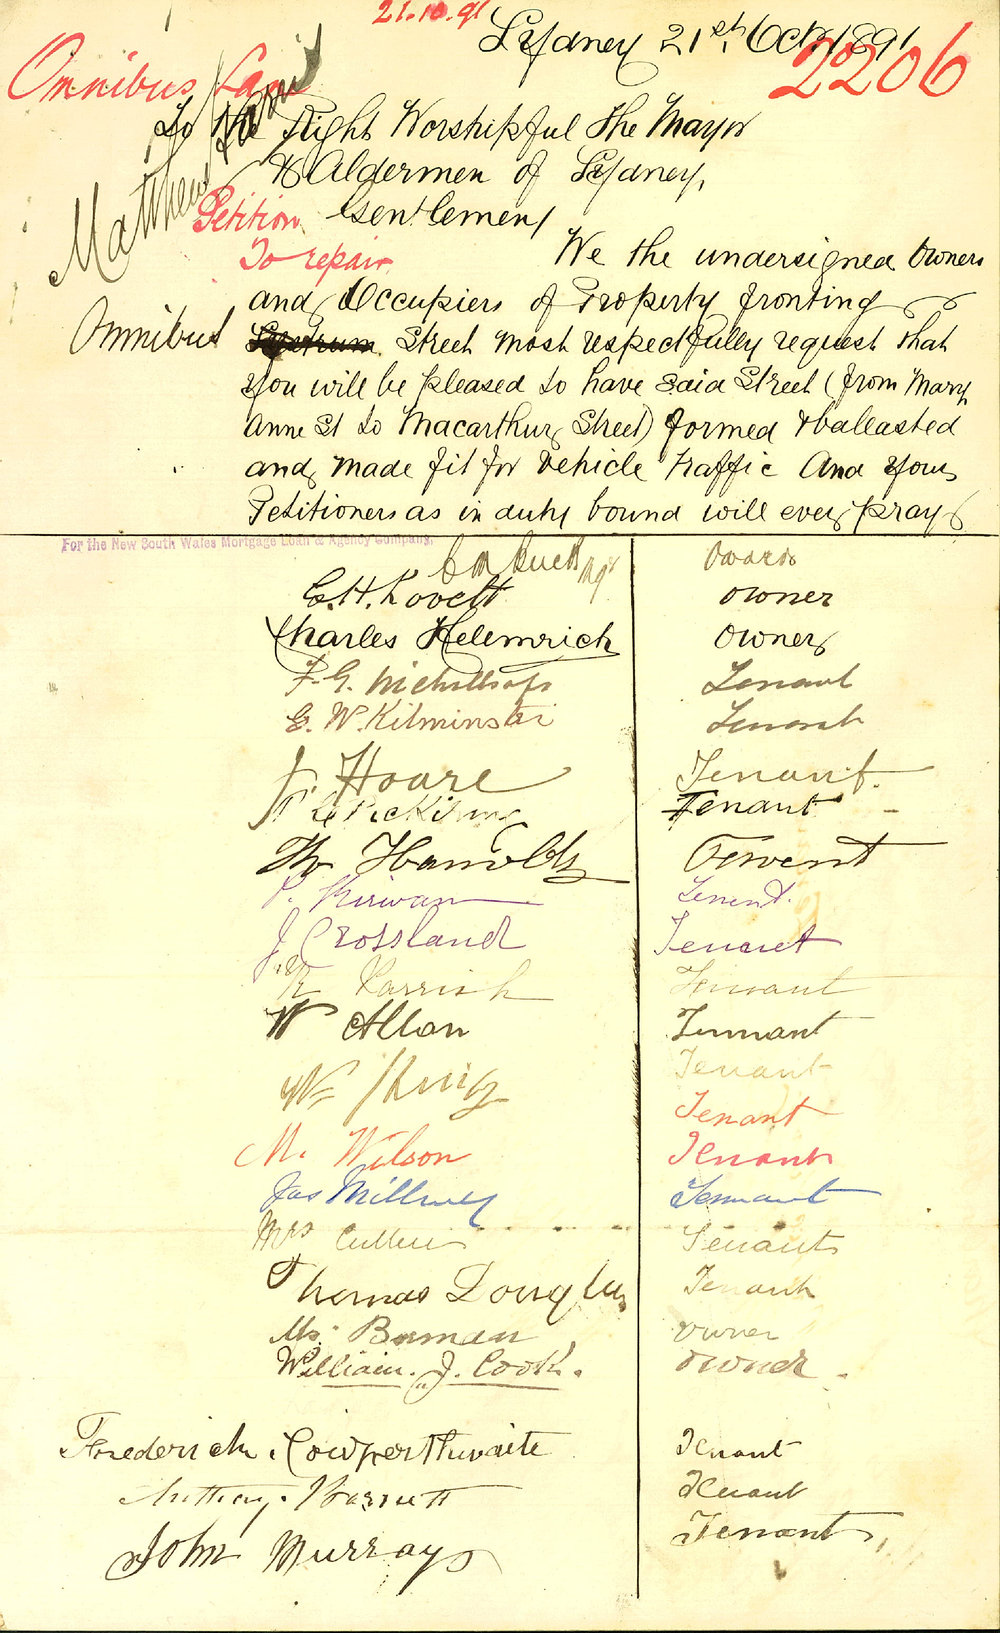 21.10.91
Sydney 21st Octr 1891
2206
Omnibus Lane
To the Right Worshipful The Mayor
& Aldermen of Sydney,
Matthew
Petition Gentlemen,
To repair We the undersigned Owners
and Occupiers of Property fronting
Omnibus Street most respectfully request that
you will be pleased to have said Street (from Mary
Anne St to Macarthur Street) formed & ballasted
and made fit for vehicle traffic And your
Petitioners as in duty bound will ever pray
For the New South Wales Mortgage Loan & Agency Company.
Owners
C.H. Lovett owner
Charles Helemrich owner
F. G. Tenant
G. W. Kilminster Tenant
J. Hoare Tenant
Pickering Tenant
Tenent
P. Kirwan Tenent.
J Crossland Tenant
R Parrish Tennant
W Allan Tennant
Wm Tenant
Tenant
M. Wilson Tenant
Jas Tennant
Mrs Cullen Tenant
Thomas Douglas Tenant
Mr. Boman owner
William. J. Cook. owner
Frederick Cowperthwaite Tenant
Anthony Barrett Tenant
John Murray Tenant